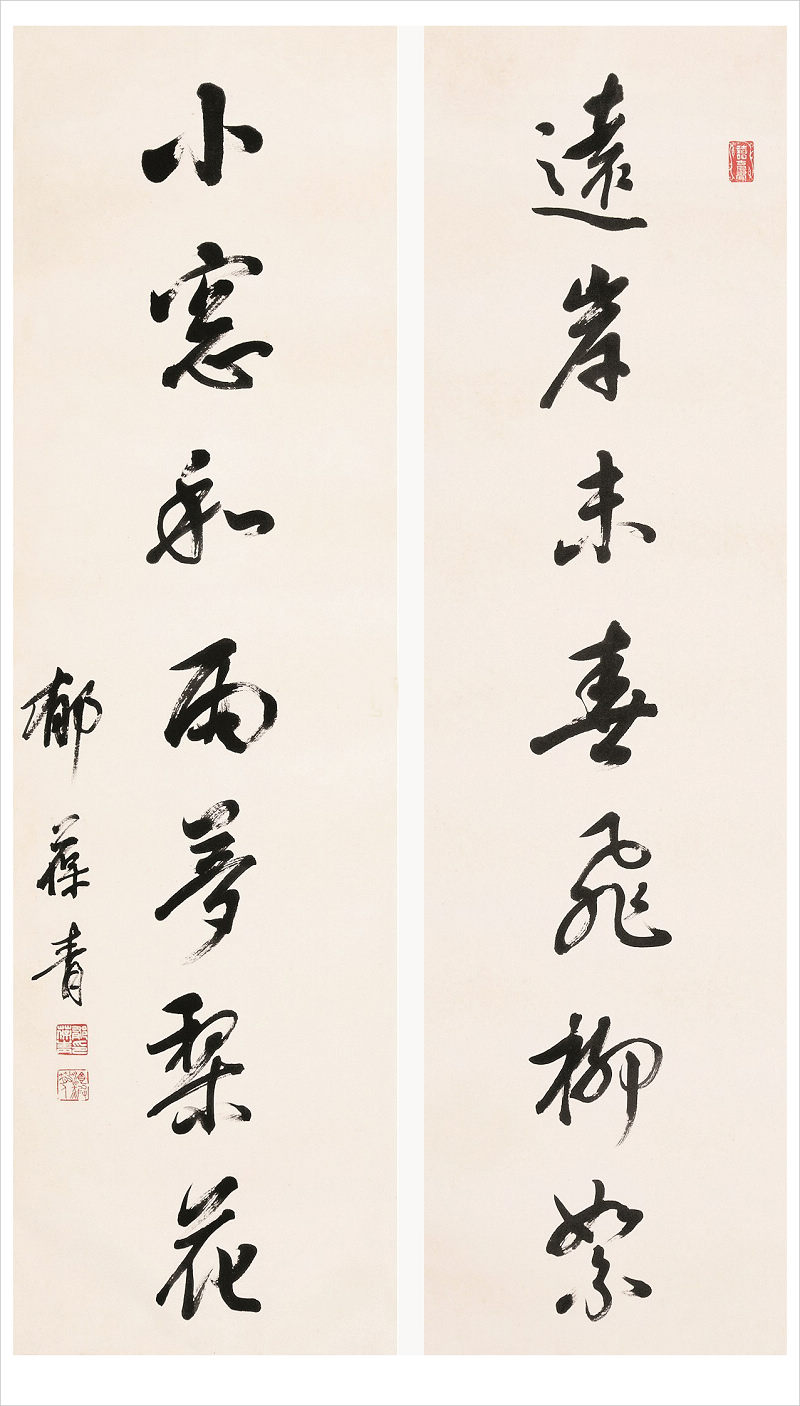 遠岸未春飛柳絮
小窓和雨夢梨花
郁葆青